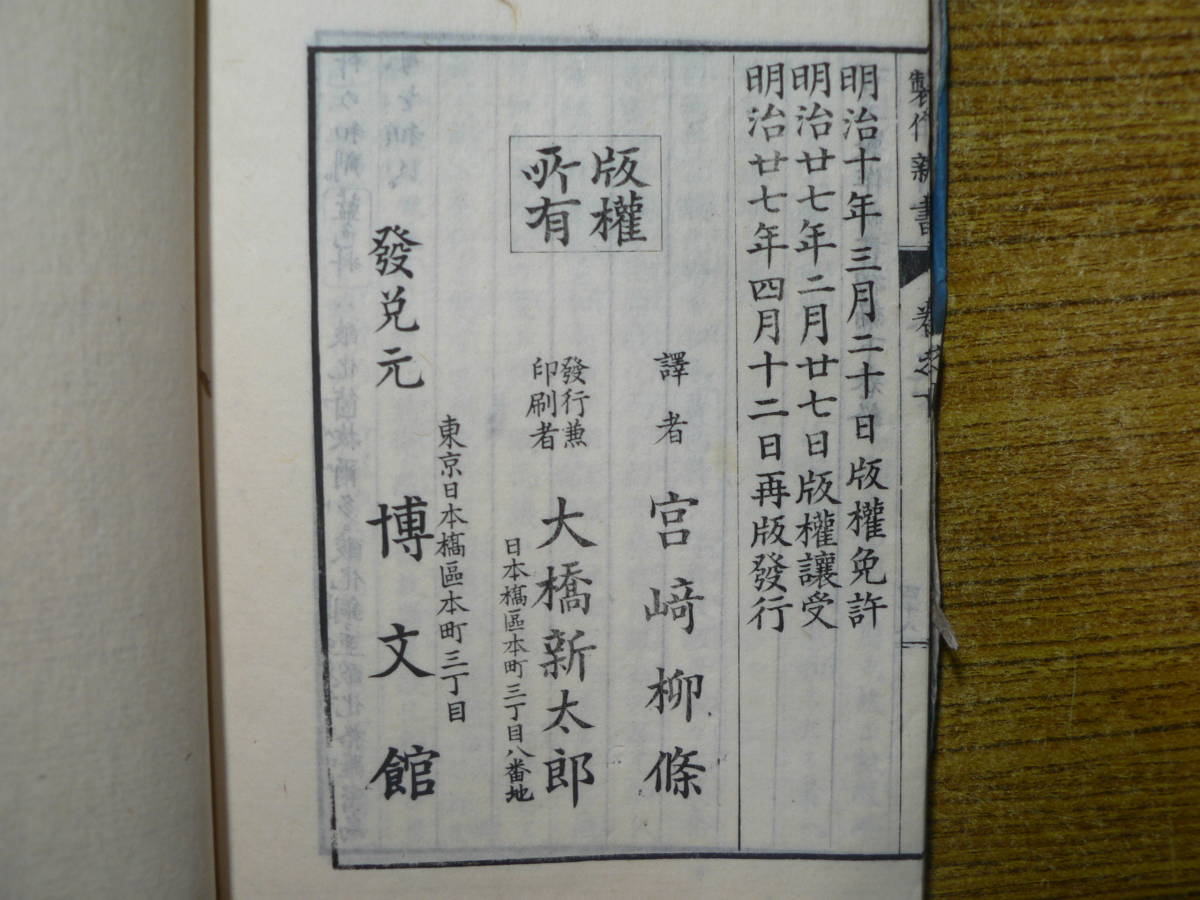 製作新書
卷之
明治十年三月二十日版權免許
明治廿七年二月廿七日版權讓受
明治廿七年四月十二日再版發行
譯者 宮﨑柳條
版權
所有
發行兼
印刷者 大橋新太郎
日本橋區本町三丁目八番地
東京日本橋區本町三丁目
發兌元 博文館